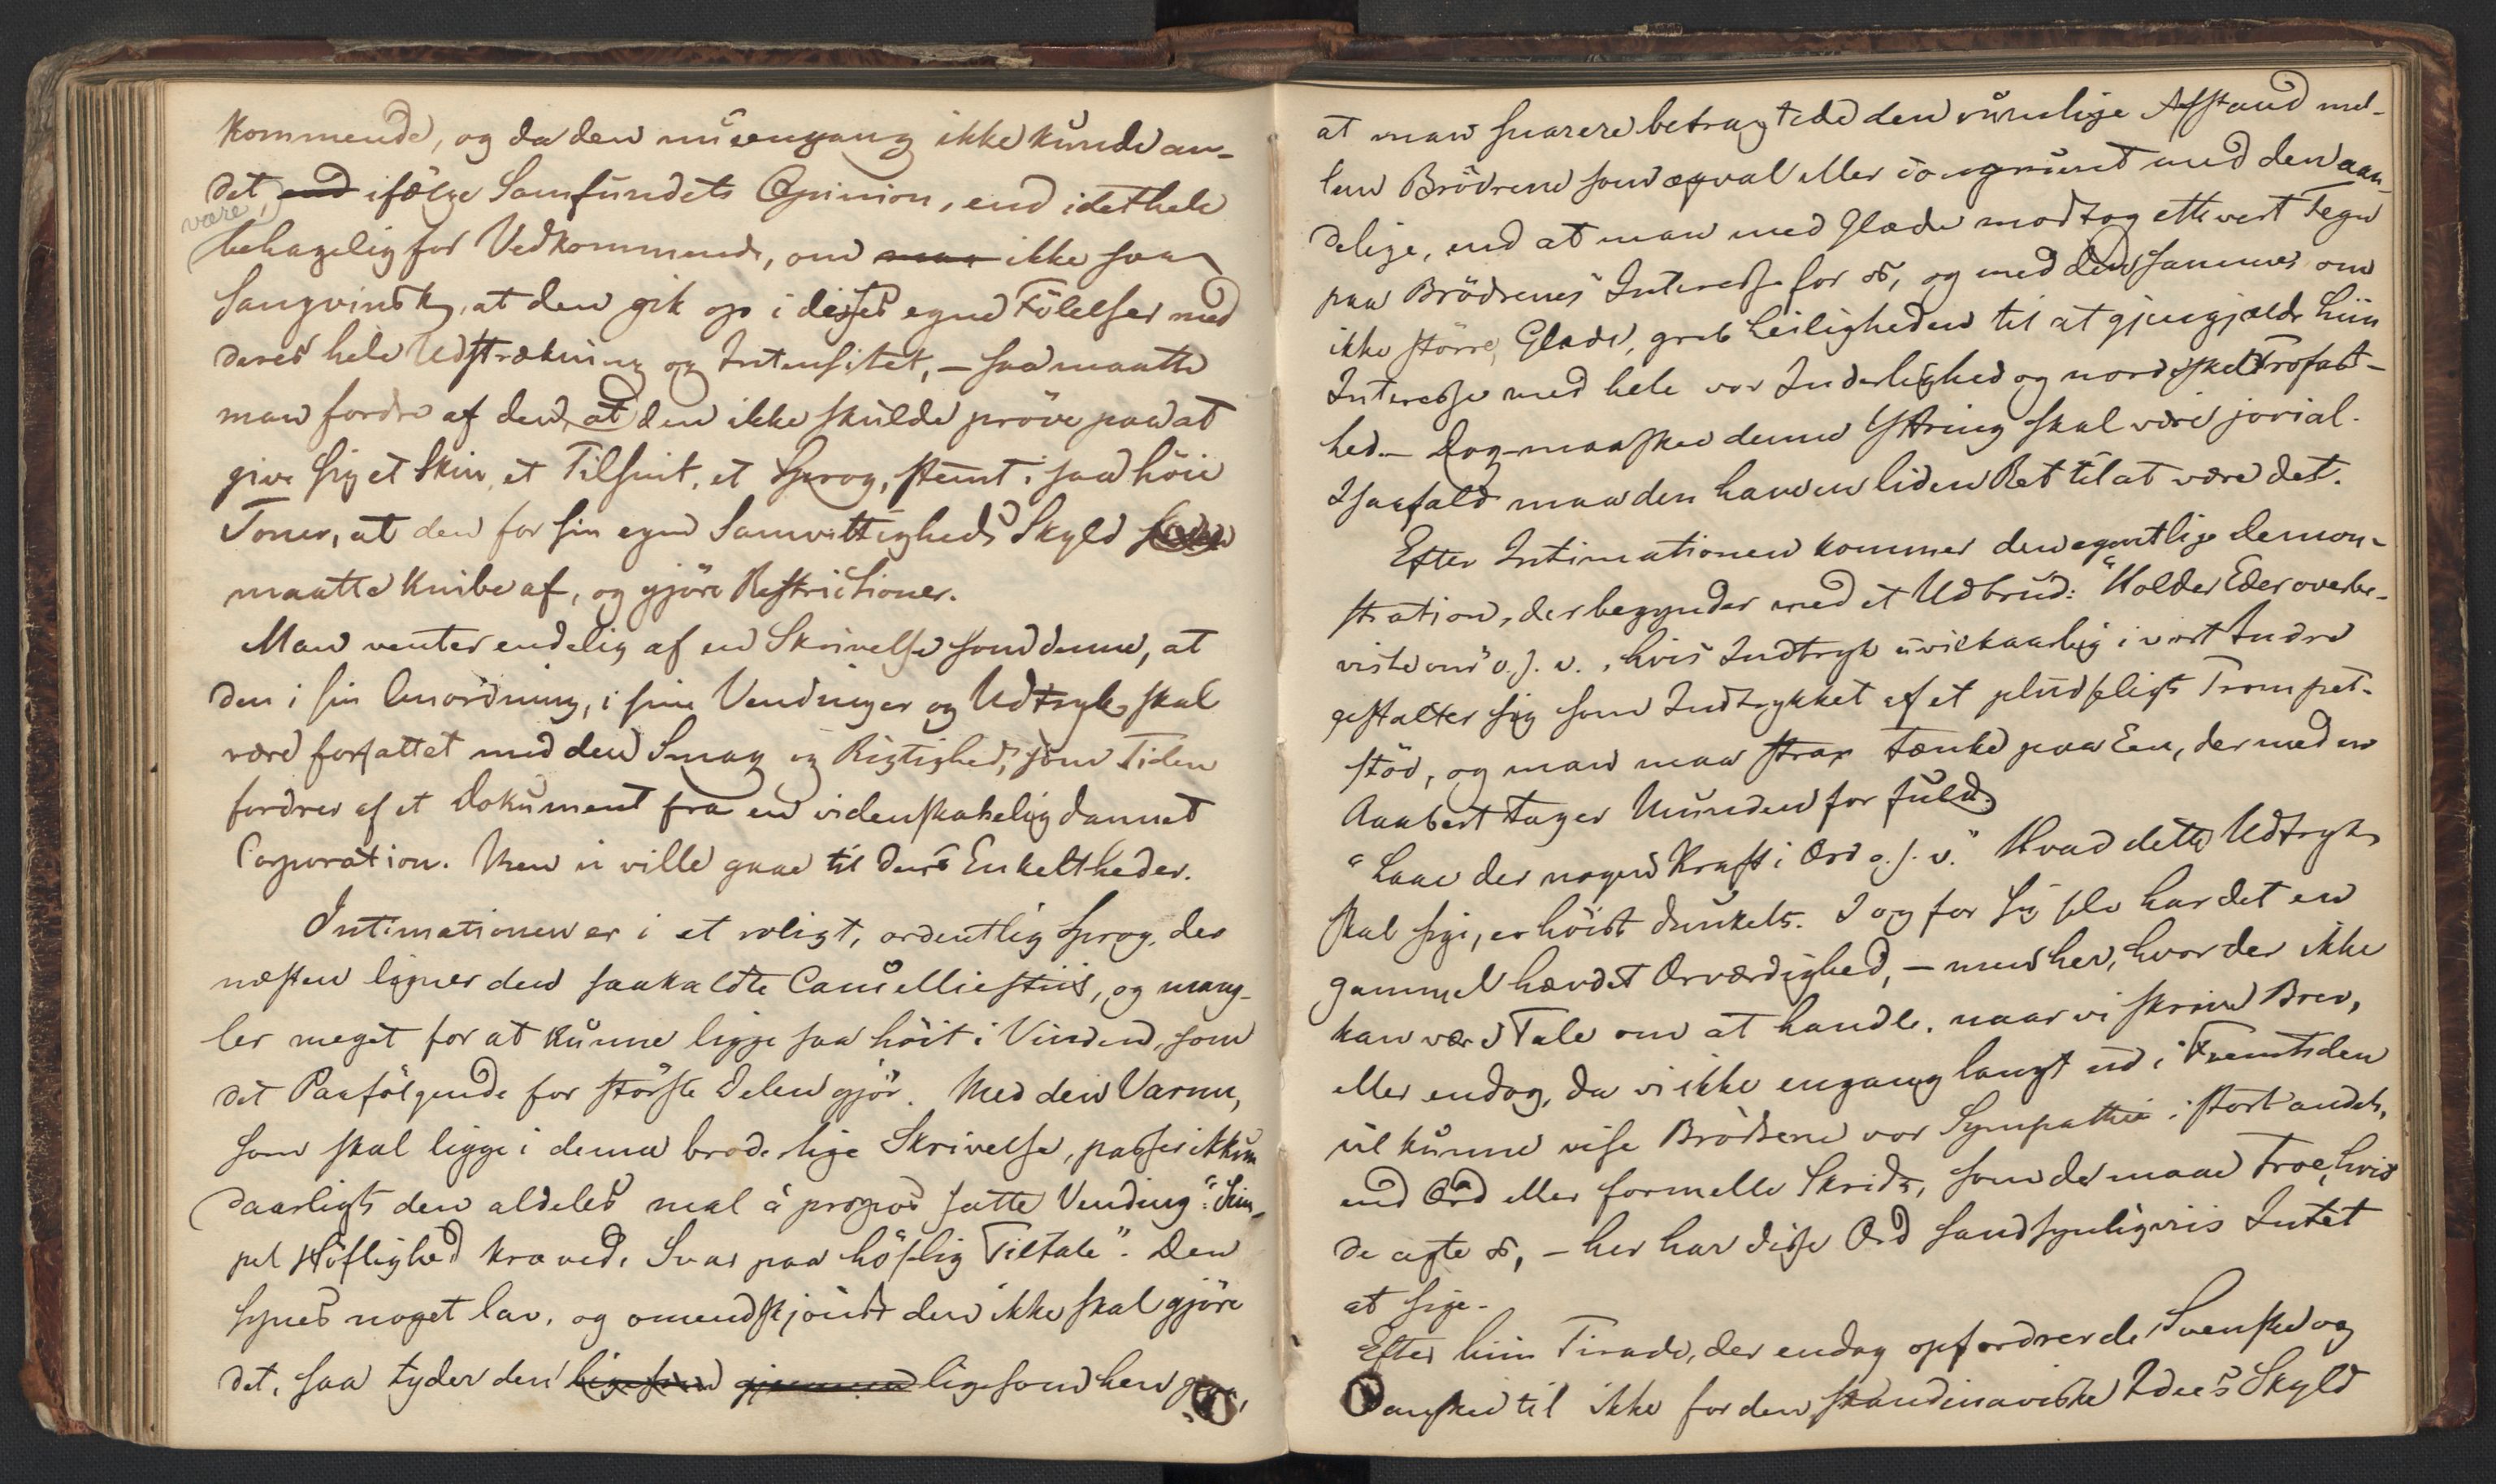 kommende, og da den nu engang ikke kunde an-
det, end ifølge Samfundets Opinion, end idethele
være
behagelig for Vedkommende, om man ikke saa
sangvinsk, at den gik op i disses egne Følelser med
deres hele Udstrækning og Intensitet, – saa maatte
man fordre af den, at den ikke skulde pröve paa at
give sig et Skin, et Tilsnit, et Sprog, stemt i saa höie
Toner, at den for sin egen Samvittigheds Skyld
maatte knibe af, og gjöre Restrictioner.
Man venter endelig af en Skrivelse som denne, at
den i sin Anordning, i sine Vendinger og Udtryk skal
være forfattet med den Smag og Rigtighed, som Tiden
fordrer af et Dokument fra en videnskabelig dannet
Corporation. Men vi ville gaae til dens Enkeltheder.
Intimationen er i et roligt, ordentlig Sprog, der
næsten ligner den saakaldte Cancelliestiil, og mang-
ler meget for at kunne ligge saa höit i Vinden, som
det Paafölgende for störste Delen gjör. Med den Varme,
som skal ligge i denne broderlige Skrivelse, passer ikkun
daarligt den aldeles mal à propos satte Vending: "Sim-
pel Höflighed kræved, Svar paa höflig Tiltale". Den
synes noget lav, og omendskjöndt den ikke skal gjöre
det, saa tyder den ligesom gjennem ligesom hen paa,
at man snarere betragtede den rumlige Afstand mel-
lem Brödrene som æqval eller congruent med den aan-
delige, end at man med Glæde modtog ethvert Tegn
paa Brödrenes Interesse for os, og med den samme, om
ikke större, Glæde, greb Leiligheden til at gjengjælde hiin
Interesse med hele vor Inderlighed og nordiske Trofast-
hed. – Dog – maaskee denne Yttring skal være jovial.
Isaafald maa den have en liden Ret til at være det.
Efter Intimationen kommer den egentlige Demon-
stration, der begynder med et Udbrud: "Holder Eder overbe-
viste om" o. s. v., hvis Indtryk uvilkaarlig i vort Indre
gestalter sig som Indtrykket af et pludseligt Trompet-
stöd, og man maa strax tænke paa Een, der med en
Aabert tager Munden for fuld.
"Laae der nogen Kraft i Ord o. s. v." Hvad dette Udtryk
skal sige, er höist dunkelt. I og for sig selv har det en
gammel hævdet Ærværdighed, – men her, hvor der ikke
kan være Tale om at handle, naar vi skrive Brev,
eller endog, da vi ikke engang langt ud i Fremtiden
vil kunne vise Brödrene vor Sympathie i stort andet,
end Ord eller formelle Skridt, som de maae troe, hvis
de agte os, – her har disse Ord sandsynligviis Intet
at sige.
Efter hiin Tirade, der endog opfordrer de Svenske og
Danske til ikke for den skandinaviske Idees Skyld